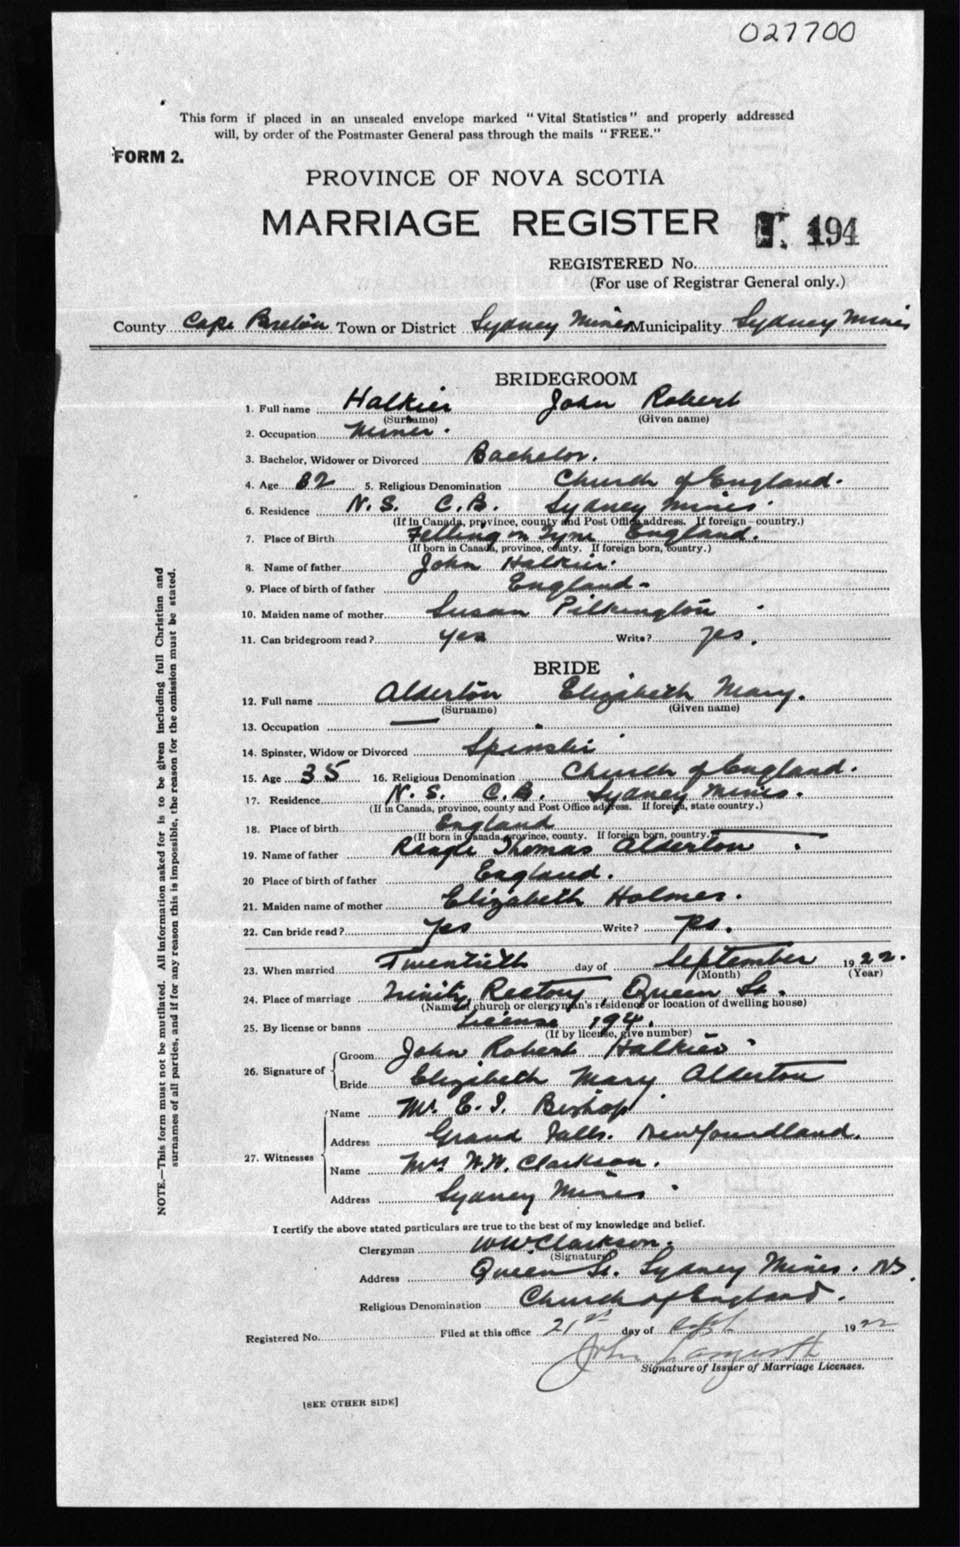 027700
This form if placed in an unsealed envelope marked "Vital Statistics" and properly addressed
will, by order of the Postmaster General pass through the mails "FREE."
FORM 2.
PROVINCE OF NOVA SCOTIA
MARRIAGE REGISTER 194
REGISTERED No.
(For use of Registrar General only.)
County Cape Breton Town or District Sydney Mines Municipality Sydney Mines
BRIDEGROOM
1. Full name Halkier John Robert
(Surname) (Given name)
2. Occupation Miner.
3. Bachelor, Widower or Divorced Bachelor.
4. Age 32 5. Religious Denomination Church of England.
6. Residence N. S. C.B. Sydney Mines
(If in Canada, province, county and Post Office address. If foreign—country.)
7. Place of Birth Felling on Tyne England.
(If born in Canada, province, county. If foreign born, country.)
8. Name of father John Halkier.
9. Place of birth of father England.
10. Maiden name of mother Susan Pilkington
11. Can bridegroom read? yes Write? yes.
BRIDE
12. Full name Alderton Elizabeth Mary.
(Surname) (Given name)
13. Occupation —
14. Spinster, Widow or Divorced Spinster
15. Age 35 16. Religious Denomination Church of England.
17. Residence N. S. C.B. Sydney Mines.
(If in Canada, province, county and Post Office address. If foreign, state country.)
18. Place of birth England
(If born in Canada, province, county. If foreign born, country.)
19. Name of father Thomas Alderton
20 Place of birth of father England.
21. Maiden name of mother Elizabeth Holmes.
22. Can bride read? yes Write? yes.
23. When married Twentieth day of September 1922.
(Month) (Year)
24. Place of marriage Trinity Rectory, Queen St.
(Name of church or clergyman's residence or location of dwelling house)
25. By license or banns License 194.
(If by license, give number)
26. Signature of Groom John Robert Halkier
Bride Elizabeth Mary Alderton
27. Witnesses Name Mr E. I. Bishop
Address Grand Falls. Newfoundland.
Name Mrs W.W. Clarkson.
Address Sydney Mines
I certify the above stated particulars are true to the best of my knowledge and belief.
Clergyman W.W. Clarkson.
(Signature)
Address Queen St. Sydney Mines. NS.
Religious Denomination Church of England.
Registered No. Filed at this office 21st day of Sept 1922
John
Signature of Issuer of Marriage Licenses.
[SEE OTHER SIDE]
NOTE.—This form must not be mutilated. All information asked for is to be given including full Christian and
surnames of all parties, and if for any reason this is impossible, the reason for the omission must be stated.